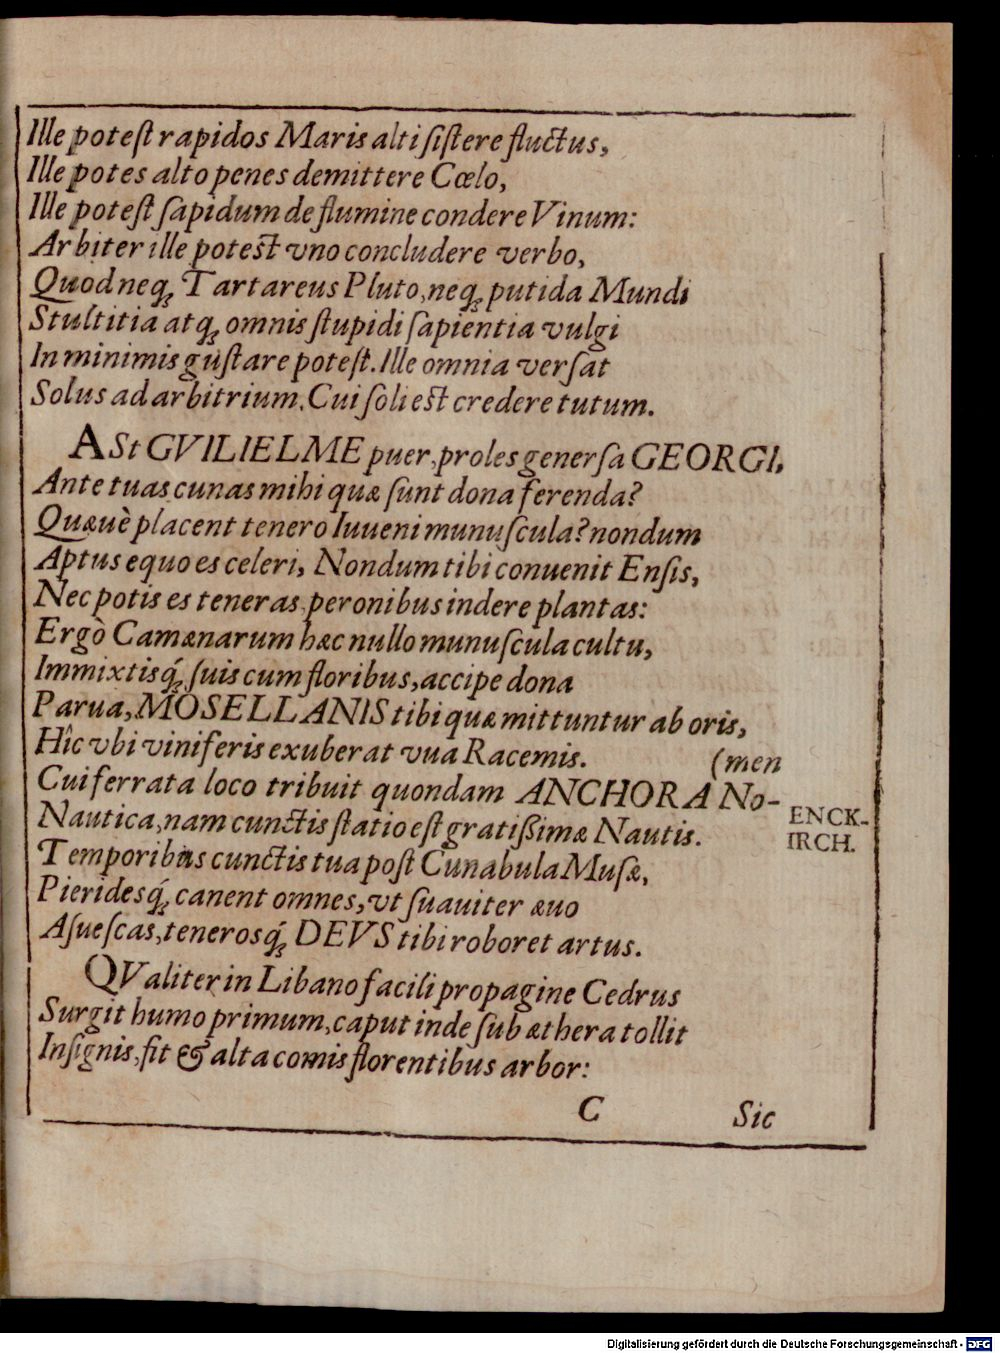 Ille poteſt rapidos Maris alti ſiſtere fluctus,
Ille potes alto penes demittere Cœlo,
Ille poteſt ſapidum de flumine condere Vinum:
Arbiter ille poteſt vno concludere verbo,
Quod neq; Tartareus Pluto, neq; putida Mundi
Stultitia atq; omnis ſtupidi ſapientia vulgi
In minimis guſtare poteſt. Ille omnia verſat
Solus ad arbitrium. Cui ſoli eſt credere tutum.
ASt GVILIELME puer, proles generſa GEORGI,
Ante tuas cunas mihi quæ ſunt dona ferenda?
Quæuè placent tenero Iuueni munuſcula? nondum
Aptus equo es celeri, Nondum tibi conuenit Enſis,
Nec potis es teneras peronibus indere plantas:
Ergò Camænarum hæc nullo munuſcula cultu,
Immixtisq́; ſuis cum floribus, accipe dona
Parua, MOSELLANIS tibi quæ mittuntur ab oris,
Hîc vbi viniferis exuberat vua Racemis. (men
Cui ferrata loco tribuit quondam ANCHORA No-
ENCK-
IRCH.
Nautica, nam cunctis ſtatio eſt gratißimæ Nautis.
Temporibus cunctis tua poſt Cunabula Muſæ,
Pieridesq́; canent omnes, vt ſuauiter æuo
Aſueſcas, tenerosq́; DEVS tibi roboret artus.
QValiter in Libano facili propagine Cedrus
Surgit humo primum, caput inde ſub æthera tollit
Inſignis, fit & alta comis florentibus arbor:
C Sic
Digitalisierung gefördert durch die Deutsche Forschungsgemeinschaft - DFG